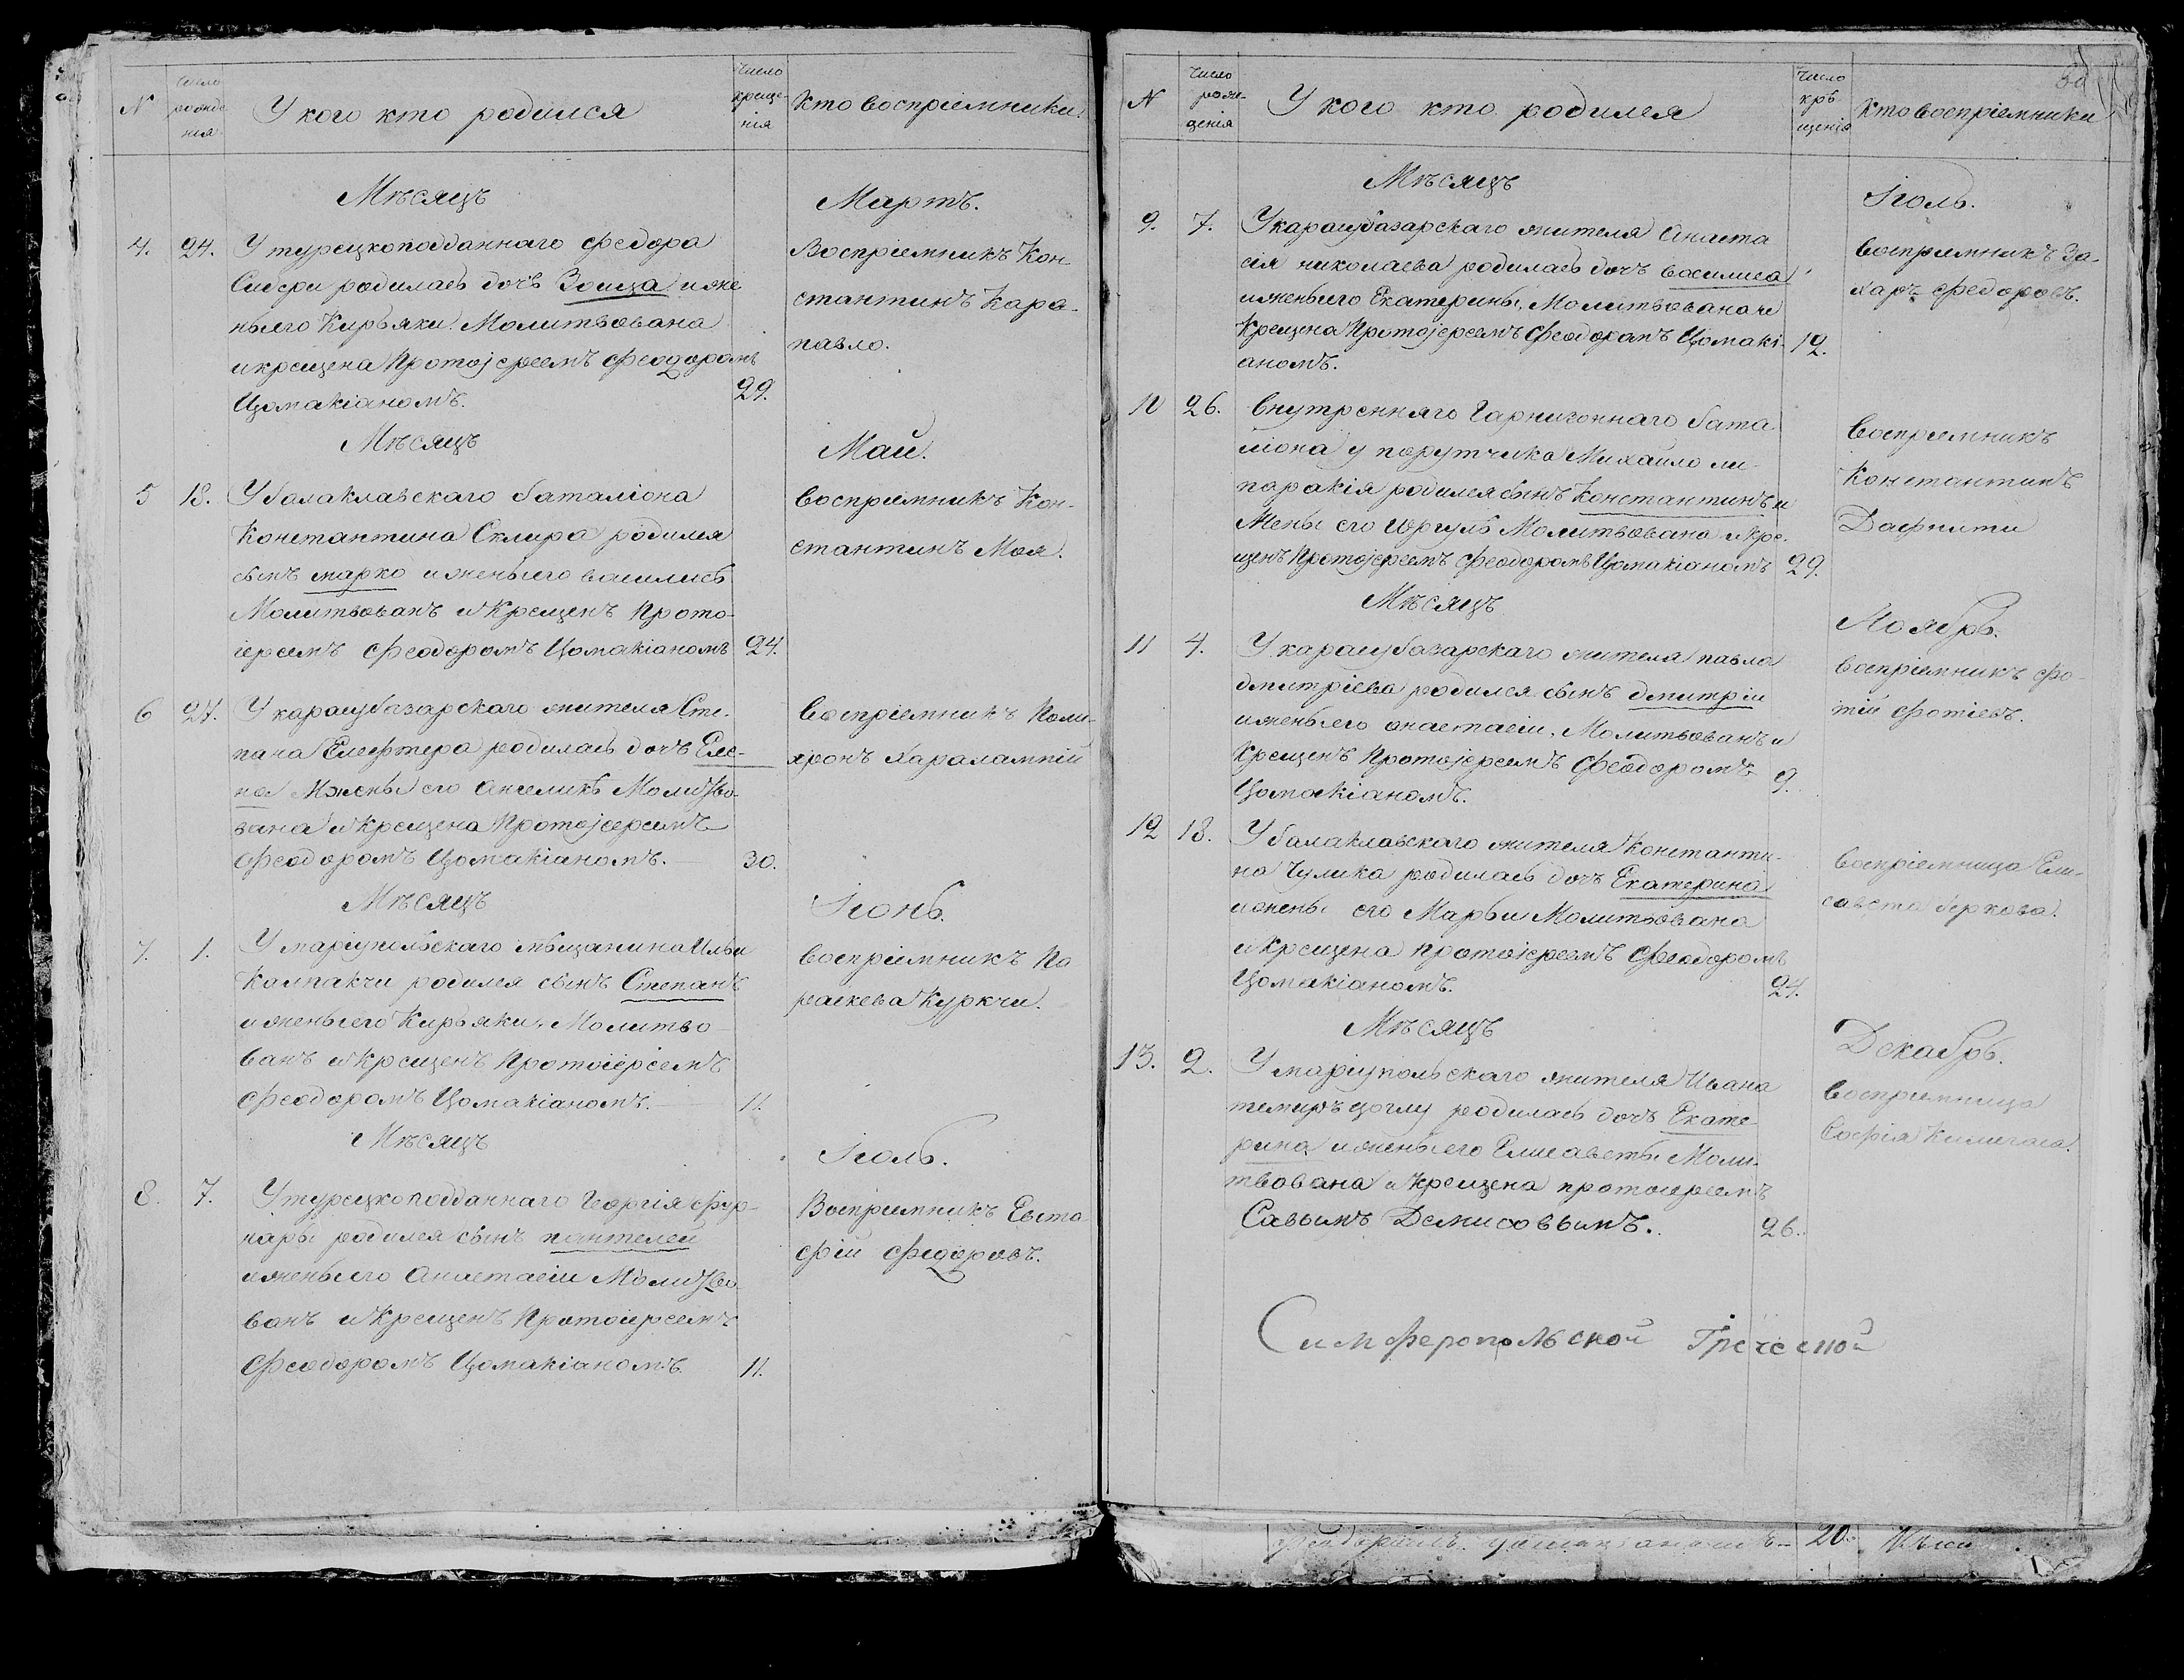 N
число рожде нія
У кого кто родился
число креще- нія
Кто воспріемники
Мѣсяцъ
Мартъ.
4. 24. У турецкоподданнаго Федора
Сидери родилась дочь Зоица и же
ны его Кирьяки. Молитвована
и крещена Протоіереемъ Феодоромъ
Цомакіаномъ. 29.
Воспріемникъ Кон-
стантинъ Кара-
павло.
Мѣсяцъ
Май.
5 18. У балаклавскаго баталіона
Константина Склира родился
сынъ марко и жены его василисы
Молитвованъ и Крещенъ Прото-
іереемъ Феодоромъ Цомакіаномъ 24.
воспріемникъ Кон-
стантинъ Моя.
6 27. У карасубазарскаго жителя Сте-
пана Елефтера родилась дочь Еле-
на И жены его Ангелики Молитво-
вана и Крещена Протоіереемъ
Феодоромъ Цомакіаномъ. 30.
воспріемникъ Поли-
хронъ Харалампій
Мѣсяцъ
Іюнь.
7. 1. У маріупольскаго мѣщанина Ильи
Калпакчи родился сынъ Степанъ
и жены его Кирьяки. Молитво-
ванъ и Крещенъ Протоіереемъ
Феодоромъ Цомакіаномъ. 11.
воспріемникъ Па
раскева Куркчи.
Мѣсяцъ
Іюль.
8. 7. У турецкоподданнаго Георгія Фур-
нары родился сынъ пантелей
и жены его Анастасіи Молитво-
ванъ и Крещенъ Протоіереемъ
Феодоромъ Цомакіаномъ. 11.
Воспріемникъ Евста
фій Федоровъ.
N
число рож- денія
У кого кто родился
число кре щенія
Кто воспріемники
Мѣсяцъ
Іюль.
9. 7. У карасубазарскаго жителя Анаста
сія николаева родилась дочь василиса
и жены его Екатерины. Молитвована и
Крещена Протоіереемъ Феодоромъ Цомакі- 12.
аномъ.
воспріемникъ За-
харъ Федоровъ.
10 26. внутренняго Гарнизоннаго бата
ліона у порутчика Михаила ли-
паракія родился сынъ Константинъ и
Жены его Моли­твованъ и кре-
щенъ Протоіереемъ Феодоромъ Цомакіаномъ 29.
воспріемникъ
Константинъ
Дафноти
Мѣсяцъ
Ноябрь.
11 4. У карасубазарскаго жителя павла
дмитріева родился сынъ дмитріи
и жены его анастасіи. Молитвованъ и
Крещенъ Протоіереемъ Феодоромъ 9.
Цомакіаномъ.
воспріемникъ Фо-
тій Фотіевъ.
12 18. У балаклавскаго жителя Константи-
на Чулика родилась дочь Екатерина
и жены его Марьи Молитвована
и Крещена протоіереемъ Феодоромъ
Цомакіаномъ. 24.
воспріемница Ели-
савета
Мѣсяцъ
Декабрь.
13. 2. У маріупольскаго жителя Ивана
темиръ цоглу родилась дочь Екате-
рина и жены его Елисаветы Моли-
твована и Крещена протоіереемъ
Савымъ Денисовымъ. 26.
воспріемница
Софія
Симферопольской Греческой
20.